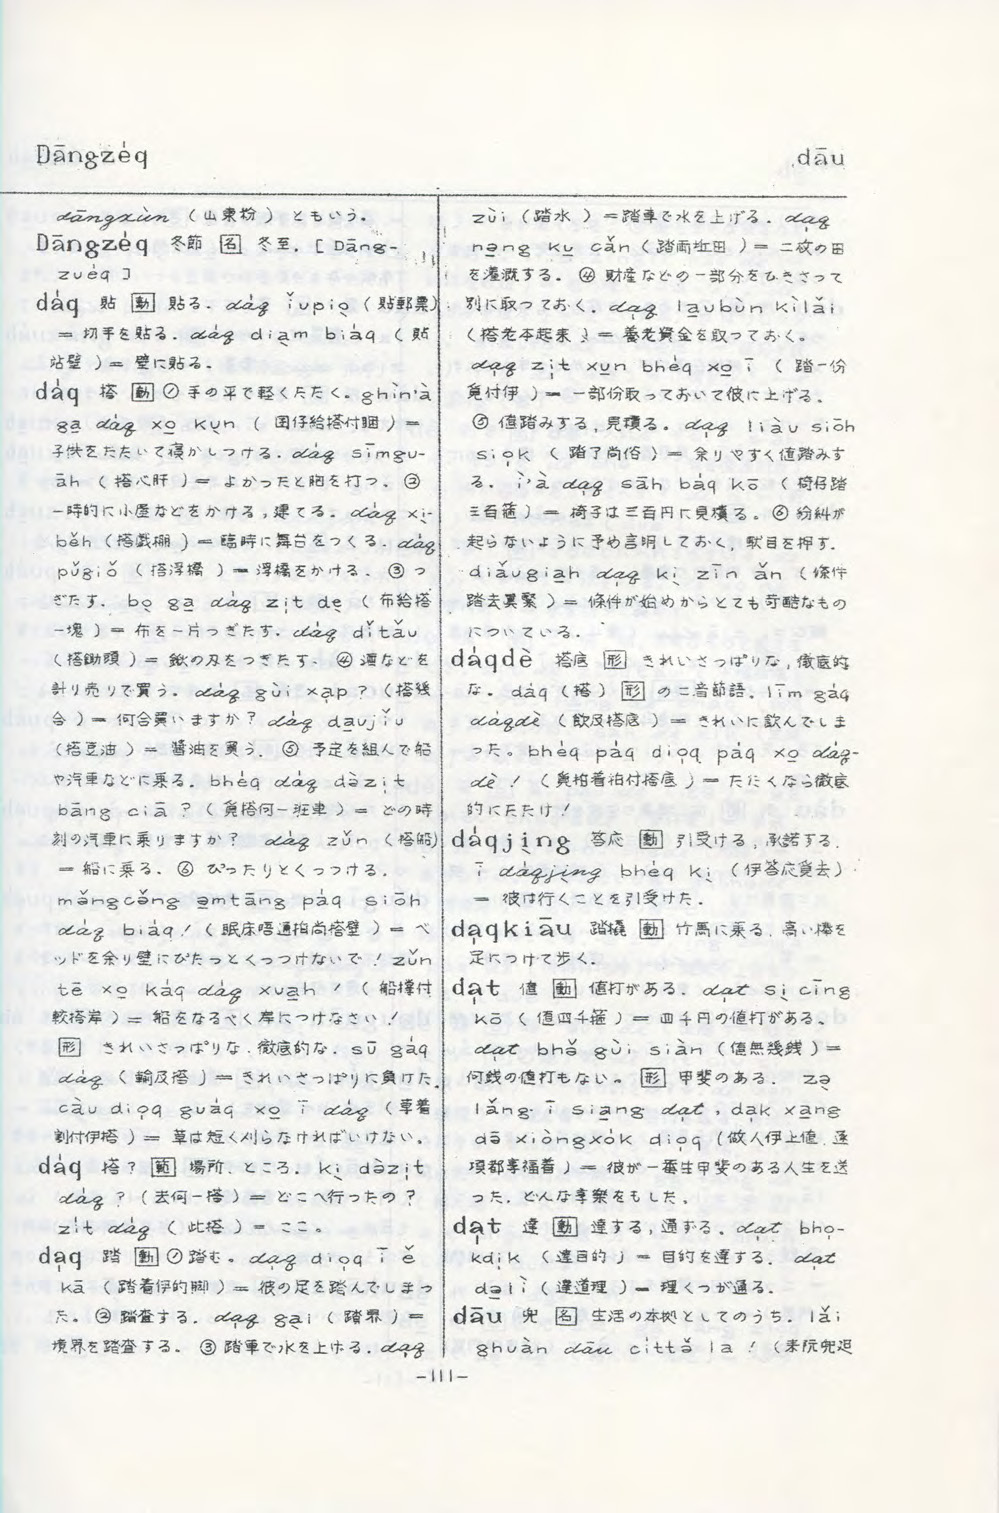 Dāngzéq
dāu
dāngxùn （山東粉）ともいう。
Dāngzéq 冬節 [名] 冬至. [ Dāng-
zuéq ]
dáq 貼 [動] 貼る. dáq ǐupiọ（貼郵票）
＝切手を貼る. dáq diạm biáq（貼
站壁）＝壁に貼る.
dáq 搭 [動] ①手の平で軽くたたく. ghìn'à
gạ dáq xọ kụn（囝仔給搭付睏）＝
子供をたたいて寝かしつける. dáq sīmgu-
āh（搭心肝）＝よかったと胸を打つ. ②
一時的に小屋などをかける,建てる. dáq xì-
běh（搭戯棚）＝臨時に舞台をつくる. dáq
pǔgiǒ（搭浮橋）＝浮橋をかける. ③つ
ぎたす. bọ gạ dáq zịt dẹ（布給搭
一塊）＝布を一片つぎたす. dáq dǐtǎu
（搭鋤頭）＝鍬の刃をつぎたす. ④酒などを
計り売りで買う. dáq gùi xạp？（搭幾
合）＝何合買いますか？ dáq dạujǐu
（搭豆油）＝醬油を買う. ⑤予定を組んで船
や汽車などに乗る. bhéq dáq dàzịt
bāng ciā？（覓搭何一班車）＝どの時
刻の汽車に乗りますか？ dáq zǔn（搭船）
＝船に乗る. ⑥ぴったりとくっつける.
mǎngcǎng ạmtāng páq siòh
dáq biáq！（眠床唔通拍尚搭壁）＝ベ
ッドを余り壁にぴたっとくっつけないで！ zǔn
tē xọ káq dáq xuạh！（船撑付
較搭岸）＝船をなるべく岸につけなさい！
[形] きれいさっぱりな.徹底的な. sū gáq
dáq（輸及搭）＝きれいさっぱりに負けた.
càu diọq guáq xọ ī dáq（草着
割付伊搭）＝草は短く刈らなければいけない.
dáq 搭？[範] 場所.ところ. kị dàzịt
dáq？（去何一搭）＝どこへ行ったの？
zít dáq（此搭）＝ここ。
dạq 踏 [動] ①踏む. dạq diọq ī ě
kā（踏着伊的脚）＝彼の足を踏んでしまっ
た. ②踏査する. dạq gại（踏界）＝
境界を踏査する. ③踏車で水を上げる. dạq
zùi（踏水）＝踏車で水を上げる. dạq
nạng kụ cǎn（踏両坵田）＝二枚の田
を灌漑する. ④財産などの一部分をひきさって
別に取っておく. dạq lạubùn kìlǎi
（搭老本起来）＝養老資金を取っておく。
dạq zịt xụn bhéq xọ ī（踏一份
覓付伊）＝一部份取っておいて彼に上げる.
⑤値踏みする,見積る. dạq liàu siōh
siọk（踏了尚俗）＝余りやすく値踏みす
る. ì'à dạq sāh báq kō（椅仔踏
三百箍）＝椅子は三百円に見積る. ⑥紛糾が
起らないように予め言明しておく, 駄目を押す.
diǎugiạh dạq kị zīn ǎn（條件
踏去真緊）＝條件が始めからとても苛酷なもの
についている.
dáqdè 搭底 [形] きれいさっぱりな,徹底的
な. dáq（搭）[形] の二音節語. līm gáq
dáqdè（飲及搭底）＝きれいに飲んでしま
った。bhéq páq diọq páq xọ dáq-
dè！（覓拍着拍付搭底）＝たたくなら徹底
的にたたけ！
dáqjịng 答応 [動] 引受ける,承諾する.
ī dáqjịng bhéq kị（伊答応覓去）
＝彼は行くことを引受けた.
dạqkiāu 踏橇 [動] 竹馬に乗る. 高い棒を
足につけて歩く.
dạt 値 [動] 値打がある. dạt sị cīng
kō（値四千箍）＝四千円の値打がある.
dạt bhǒ gùi siàn（値無幾銭）＝
何銭の値打もない. [形] 甲斐のある. zọ
lǎng ī siạng dạt, dạk xạng
dō xiòngxók diọq（做人伊上値.逐
項都享福着）＝彼が一番生甲斐のある人生を送
った. どんな享楽をもした.
dạt 達 [動] 達する,通ずる. dạt bhọ-
kdịk（達目的）＝目的を達する. dạt
dọlì（達道理）＝理くつが通る.
dāu 兜 [名] 生活の本拠としてのうち. lǎi
ghuàn dāu cìttǒ la！（来阮兜𨑨
-111-